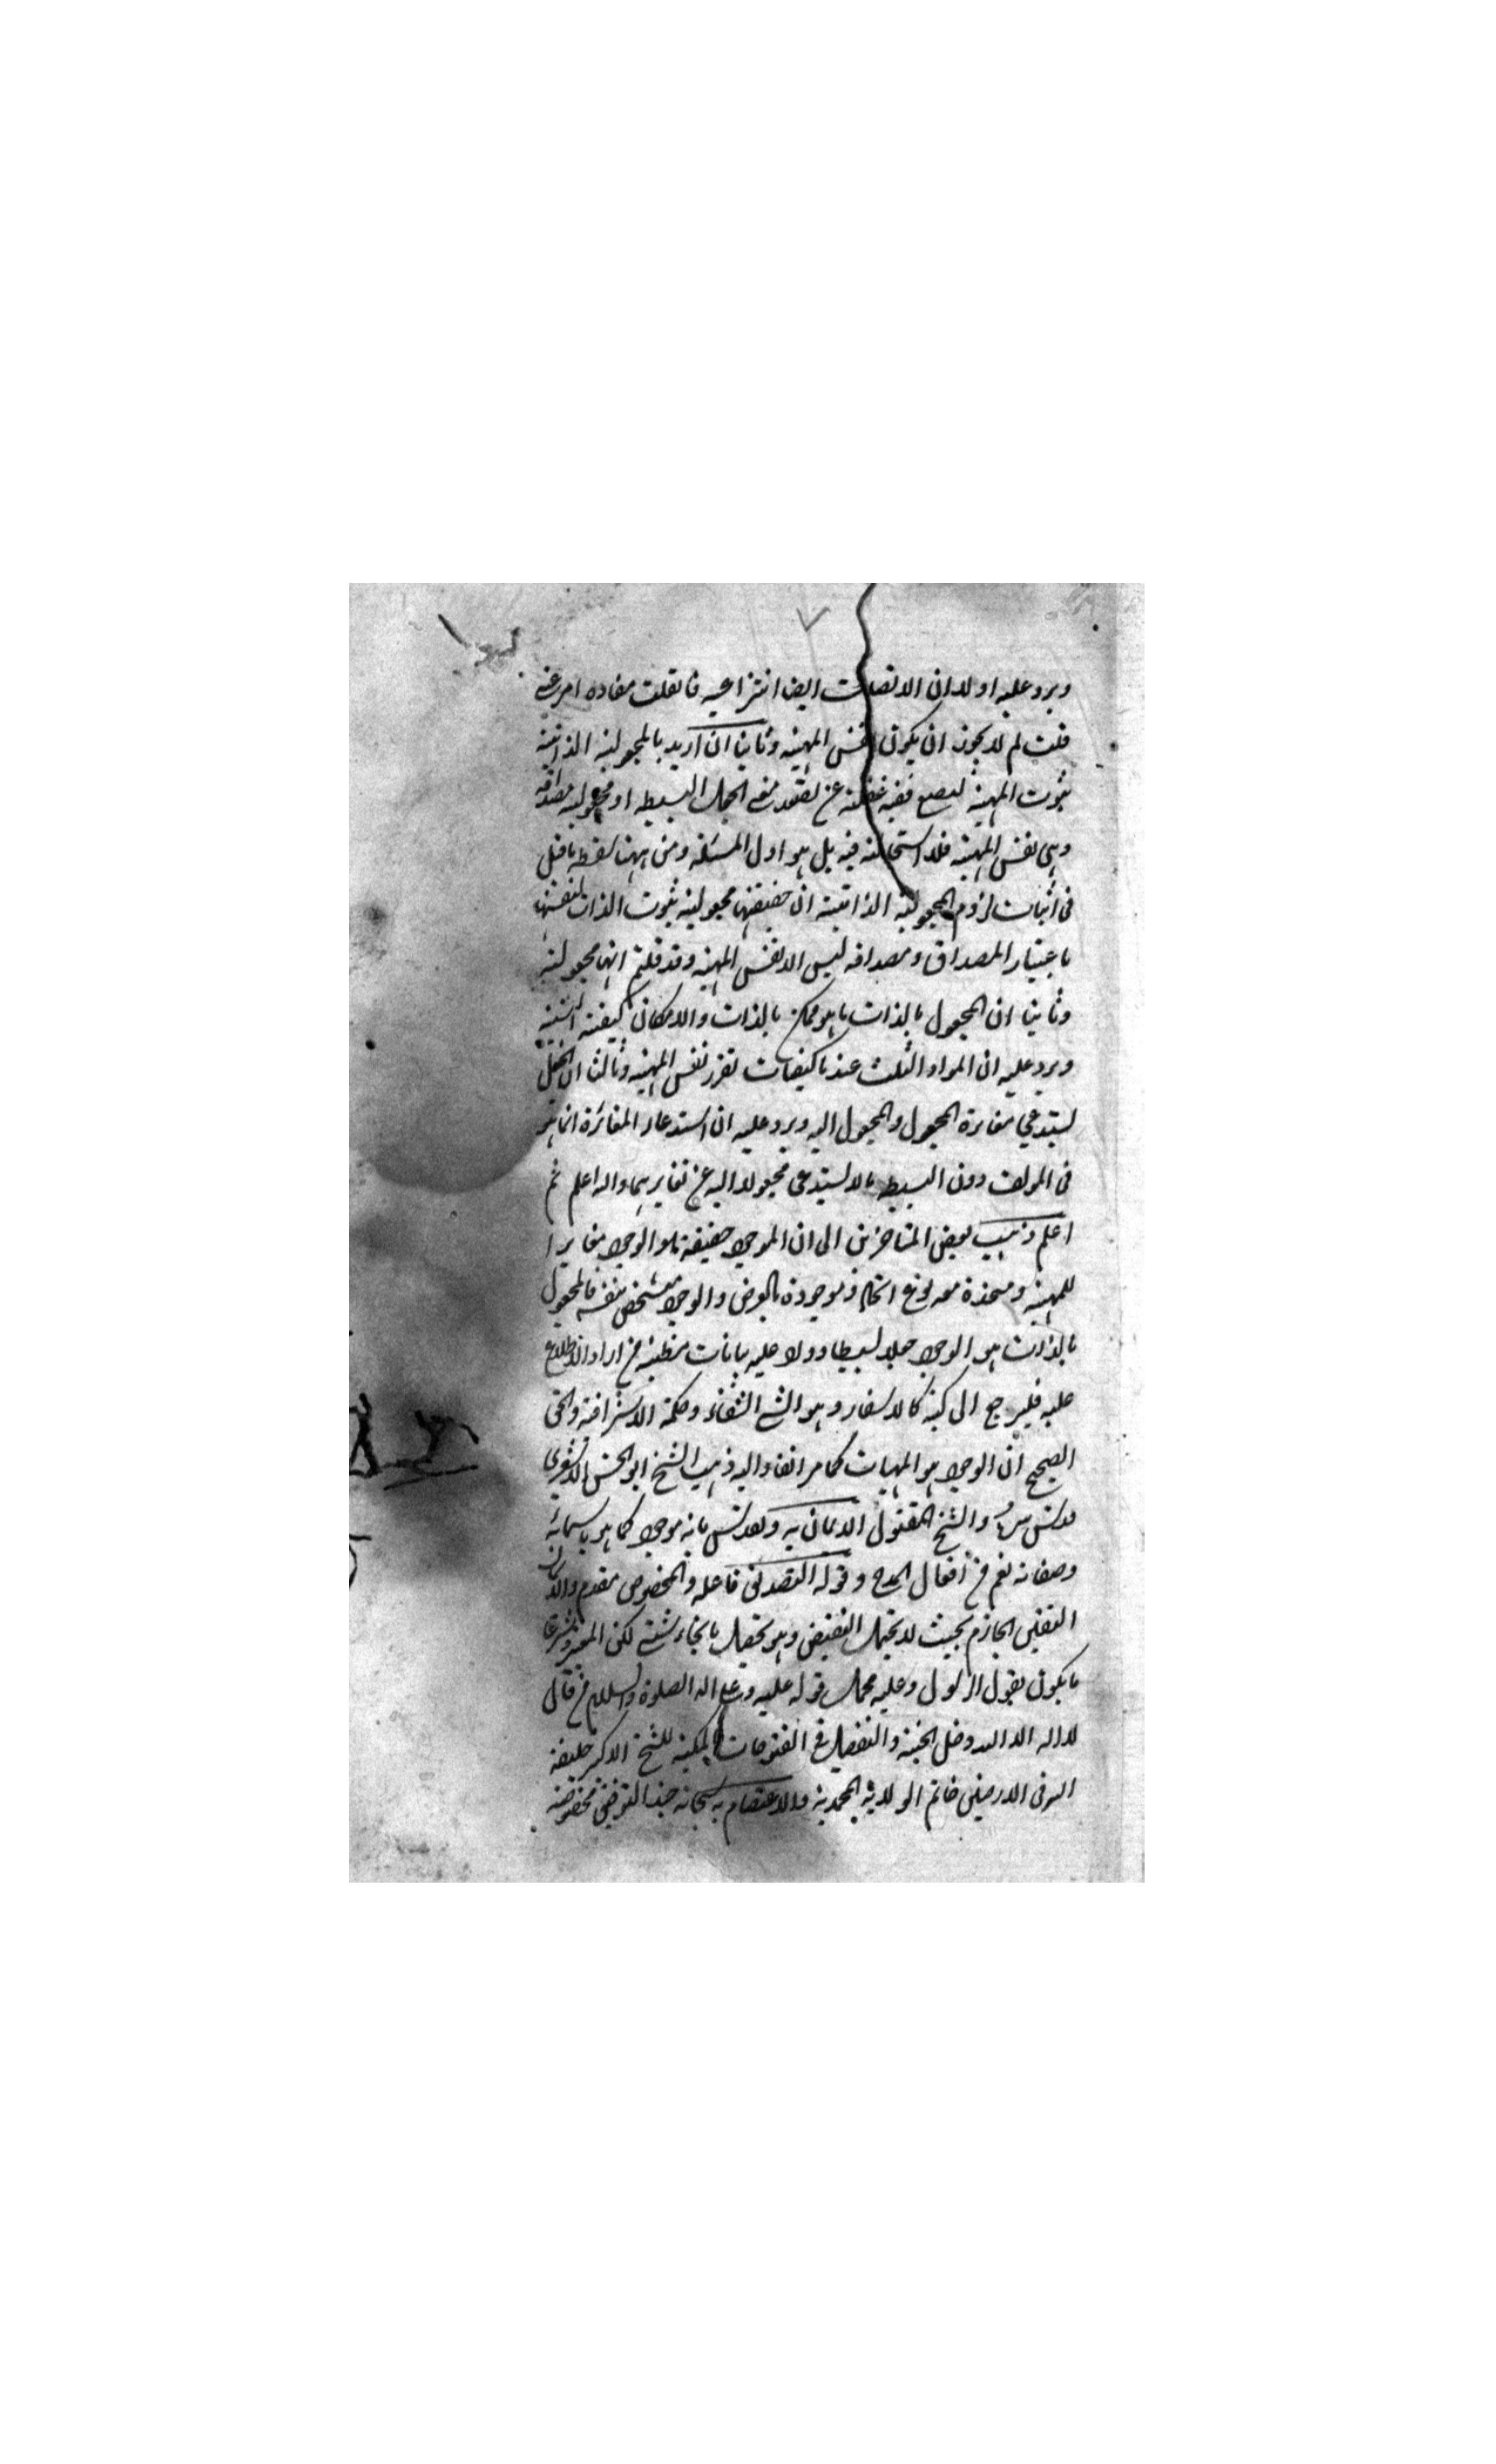 ويرد عليه اولا ان الاتصاف ايض انتزاعيه فان قلت مفاده امر عيني
قلت لم لا يجوز ان يكون نفس المهية وثانيا ان اريد بالمجعولية الذاتية
ثبوت المهية لنفسها ففيه غفلة عن تصور معنى الجعل البسيط او مجعولية مصداقه
وهى نفس المهية فلا استحالة فيه بل هو اول المسئلة ومن ههنا سقط ما قيل
فى اثبات لزوم المجعولية الذاتية ان حقيقتها مجعولية ثبوت الذات لنفسها
باعتبار المصداق ومصداقه ليس الا نفس المهية وقد قلتم انها مجعولة
وثانيا ان المجعول بالذات ما هو ممكن بالذات والامكان كيفية النسبة
ويرد عليه ان المواد الثلث عندنا كيفيات تقرر نفس المهية وثالثا ان الجعل
يستدعي مغايرة المجعول والمجعول اليه ويرد عليه ان استدعاء المغائرة انما هو
فى المولف دون البسيط ما لا يستدعى مجعولا اليه عن تغايرهما والله اعلم ثم
اعلم ذهب بعض المتاخرين الى ان الموجود حقيقة هو الوجود مغايرا
للمهية ومتحدة معه نوع اتحاد وموجودة بالعرض والوجود متشخص بنفسه فالمجعول
بالذات هو الوجود جعلا بسيطا ودلا عليه بيانات من اراد الاطلاع
عليه فليرجع الى كتبه كالاسفار وحواشى الشفاء وحكمة الاشراق والحق
الصحيح ان الوجود هو المهيات كما مر انفا واليه ذهب الشيخ ابو الحسن الاشعري
قدس سره والشيخ المقتول الايمان به وتصديق بانه موجود كما هو باسمائه
وصفاته نعم من افعال المدح وقوله التصديق فاعله والمخصوص مقدم والايمان
اليقين الجازم بحيث لا يحتمل النقيض وهو تحصيل بانحاء شتى لكن المعتبر شرعا
ما يكون بقول الرسول وعليه محمل قوله عليه وعلى اله الصلوة والسلام من قال
لا اله الا الله دخل الجنة والتفصيل فى الفتوحات المكية للشيخ الاكبر خليفة
الله فى الارضين خاتم الولاية المحمدية والاعتصام به سبحانه حبذا التوفيق